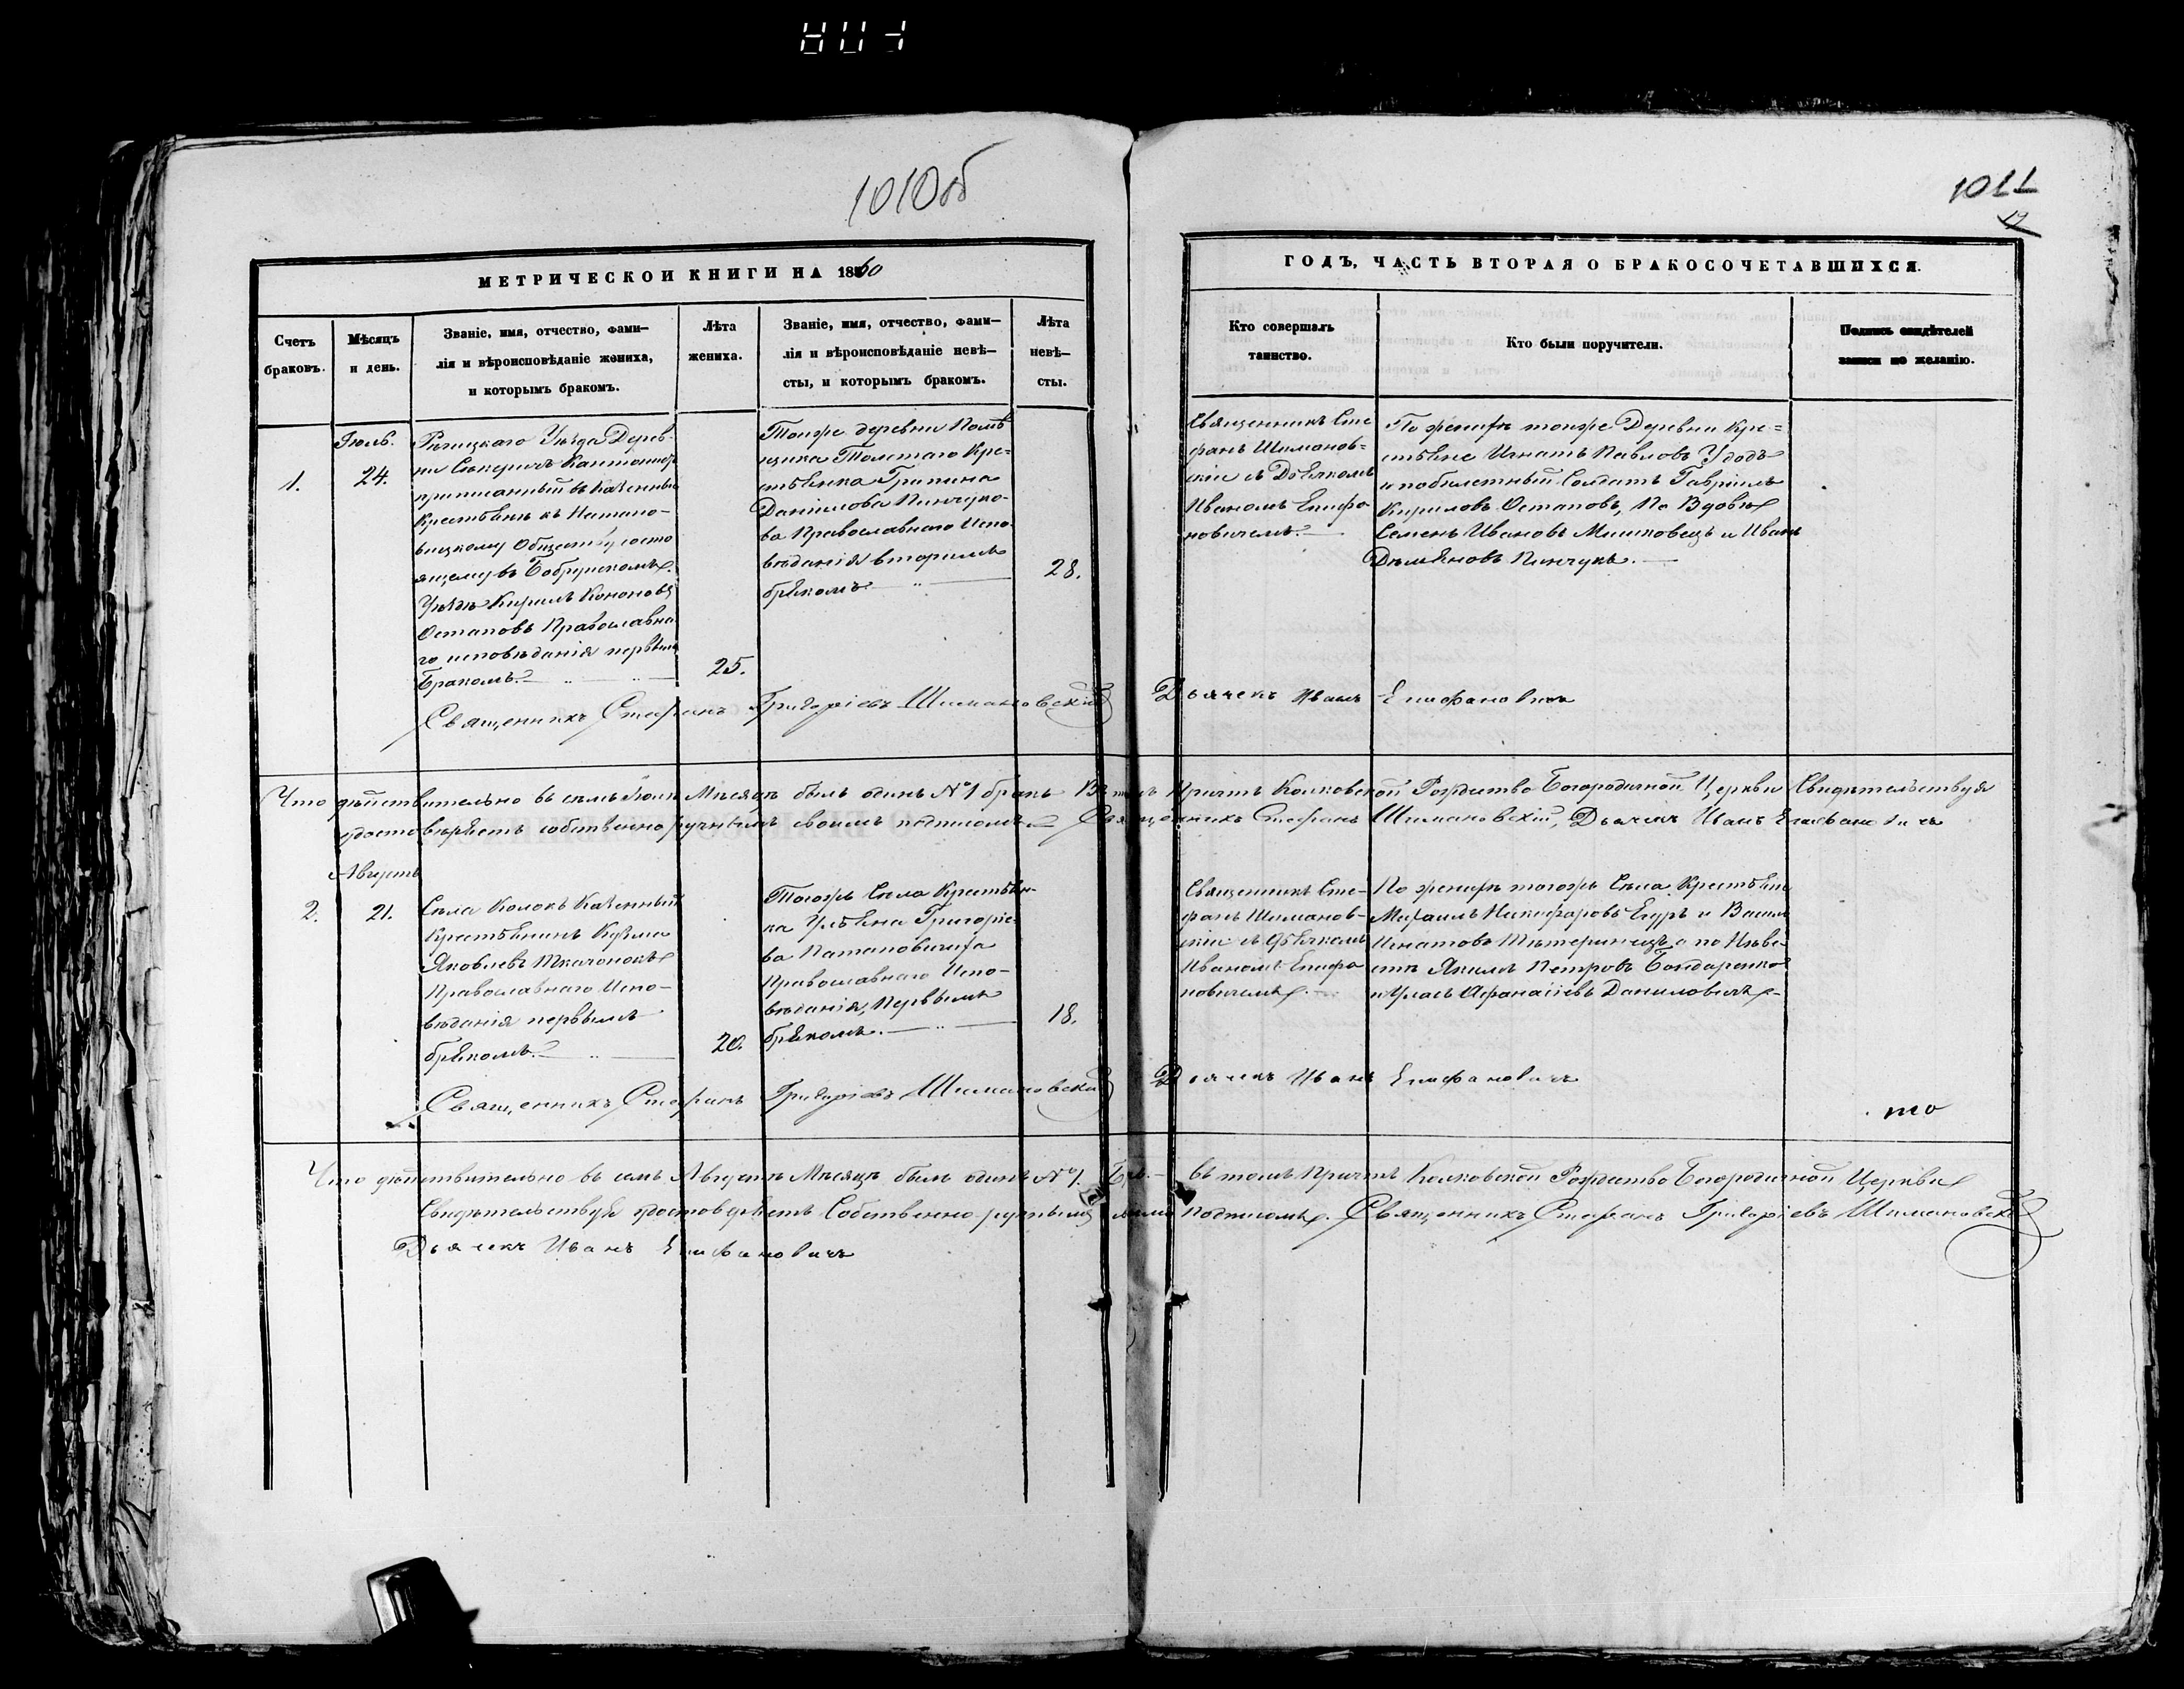 1010об
1011
12
МЕТРИЧЕСКОЙ КНИГИ НА 1860
ГОДЪ, ЧАСТЬ ВТОРАЯ О БРАКОСОЧЕТАВШИХСЯ.
Счетъ
браковъ.
Мѣсяцъ
и день.
Званіе, имя, отчество, фами–
лія и вѣроисповѣданіе жениха,
и которымъ бракомъ.
Лѣта
жениха.
Званіе, имя, отчество, фами–
лія и вѣроисповѣданіе невѣ–
сты, и которымъ бракомъ.
Лѣта
невѣ–
сты.
Кто совершалъ
таинство.
Кто были поручители.
Подпись свидѣтелей
записи по желанію.
1.
Іюль.
24.
Рѣчицкаго Уѣзда Дерев
ни
приписанный въ Казенныя
Крестьяне къ
Обществу состо
ящему въ Бобруйскомъ
Уѣздѣ Кирилъ Кононовъ
Остаповъ Православна
го исповѣданія первымъ
Бракомъ.
25.
Тойже деревни Помѣ
щика Толстаго Кре-
стьянка Грипина
Даніилова Пинчуко-
ва Православнаго Испо
вѣданія вторымъ
бракомъ
28.
Священникъ Сте
фанъ Шиманов-
скій съ Дьячкомъ
Иваномъ Епифа
новичемъ.
По женихѣ тойже Деревни Кре=
стьяне Игнатъ Павловъ Удодъ
и побилетный Солдатъ Гавріилъ
Кириловъ Остаповъ, По Вдовѣ
Семенъ Ивановъ Мишковецъ и Иванъ
Демьяновъ Пинчукъ.
Священникъ Стефанъ Григоріевъ Шимановскій
Дьячекъ Иванъ Епифановичъ
Что дѣйствительно въ семъ Іюлѣ Мѣсяцѣ былъ одинъ №1 бракъ Въ томъ Причтъ Колковской Рождество Богородичной Церкви Свидѣтельствуя
удостовѣряетъ собственноручнымъ своимъ подписомъ. Священникъ Стефанъ Шимановскій, Дьячекъ Иванъ Епифановичъ
2.
Августъ
21.
Села Колокъ Казенный
Крестьянинъ Кузма
Яковлевъ Ткачонокъ
Православнаго Испо-
вѣданія первымъ
бракомъ.
20.
Тогожъ Села Крестьян-
ка Ульяна Григоріе-
ва
Православнаго Испо-
вѣданія, Первымъ
бракомъ.
18.
Священникъ Сте-
фанъ Шиманов-
скій съ Дьячкомъ
Иваномъ Епифа
новичемъ.
По женихѣ тогожъ Села Крестьяне
Михаилъ Никифоровъ и Васил
Игнатовъ а по Невѣ
стѣ Якимъ Петровъ Бондаренко
и Уласъ Афанасіевъ Даниловичъ
Священникъ Стефанъ Григоріевъ Шимановскій
Дьячекъ Иванъ Епифановичъ
то
Что дѣйствительно въ семъ Августѣ Мѣсяцѣ былъ одинъ №1. Бра- въ томъ Причтъ Колковской Рождество Богородичной Церкви
Свидѣтельствуя удостовѣряетъ Собственно-ручнымъ подписомъ. Священникъ Стефанъ Григоріевъ Шимановскій
Дьячекъ Иванъ Епифановичъ